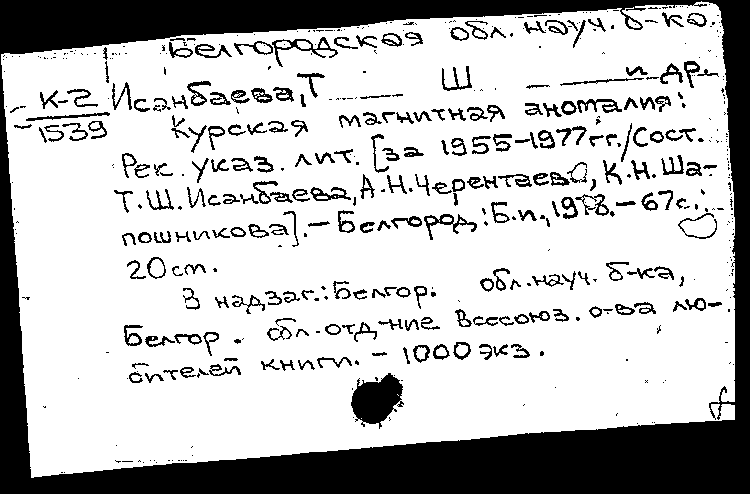 Белгородская обл. науч. б-ка.
К-2
1539
Исанбаева, Т Ш и др.
Курская магнитная аномалия:
Рек. указ. лит. [за 1955-1977гг./Сост.
Т.Ш. Исанбаева, А.Н. Черентаева, К.Н. Ша-
пошникова]. - Белгород.: Б.и., 1978. - 67с.;
20 см.
В надзаг.: Белгор. обл. науч. б-ка,
Белгор. обл. отд-ние Всесоюз. о-ва лю-
бителей книги. - 1000 экз.